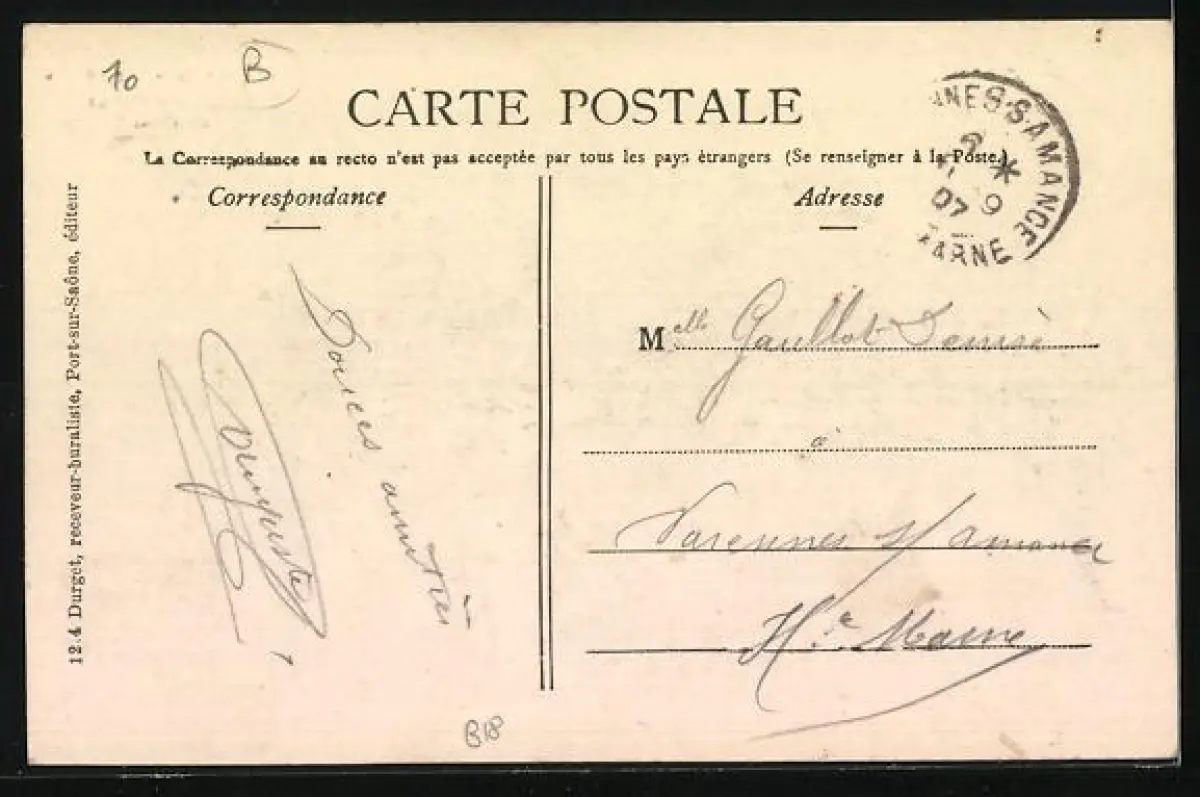 10
B
CARTE POSTALE
La Correspondance au recto n'est pas acceptée par tous les pays étrangers (Se renseigner à la Poste.)
Correspondance
Adresse
NNES-S-AMANCE
2
9
07
MARNE
12.4 Durget, receveur-buraliste, Port-sur-Saône, éditeur
Douces amitiés
Auguste
Melle Gaullot Denise
à
Varennes s/ amance
Hte Marne
B18